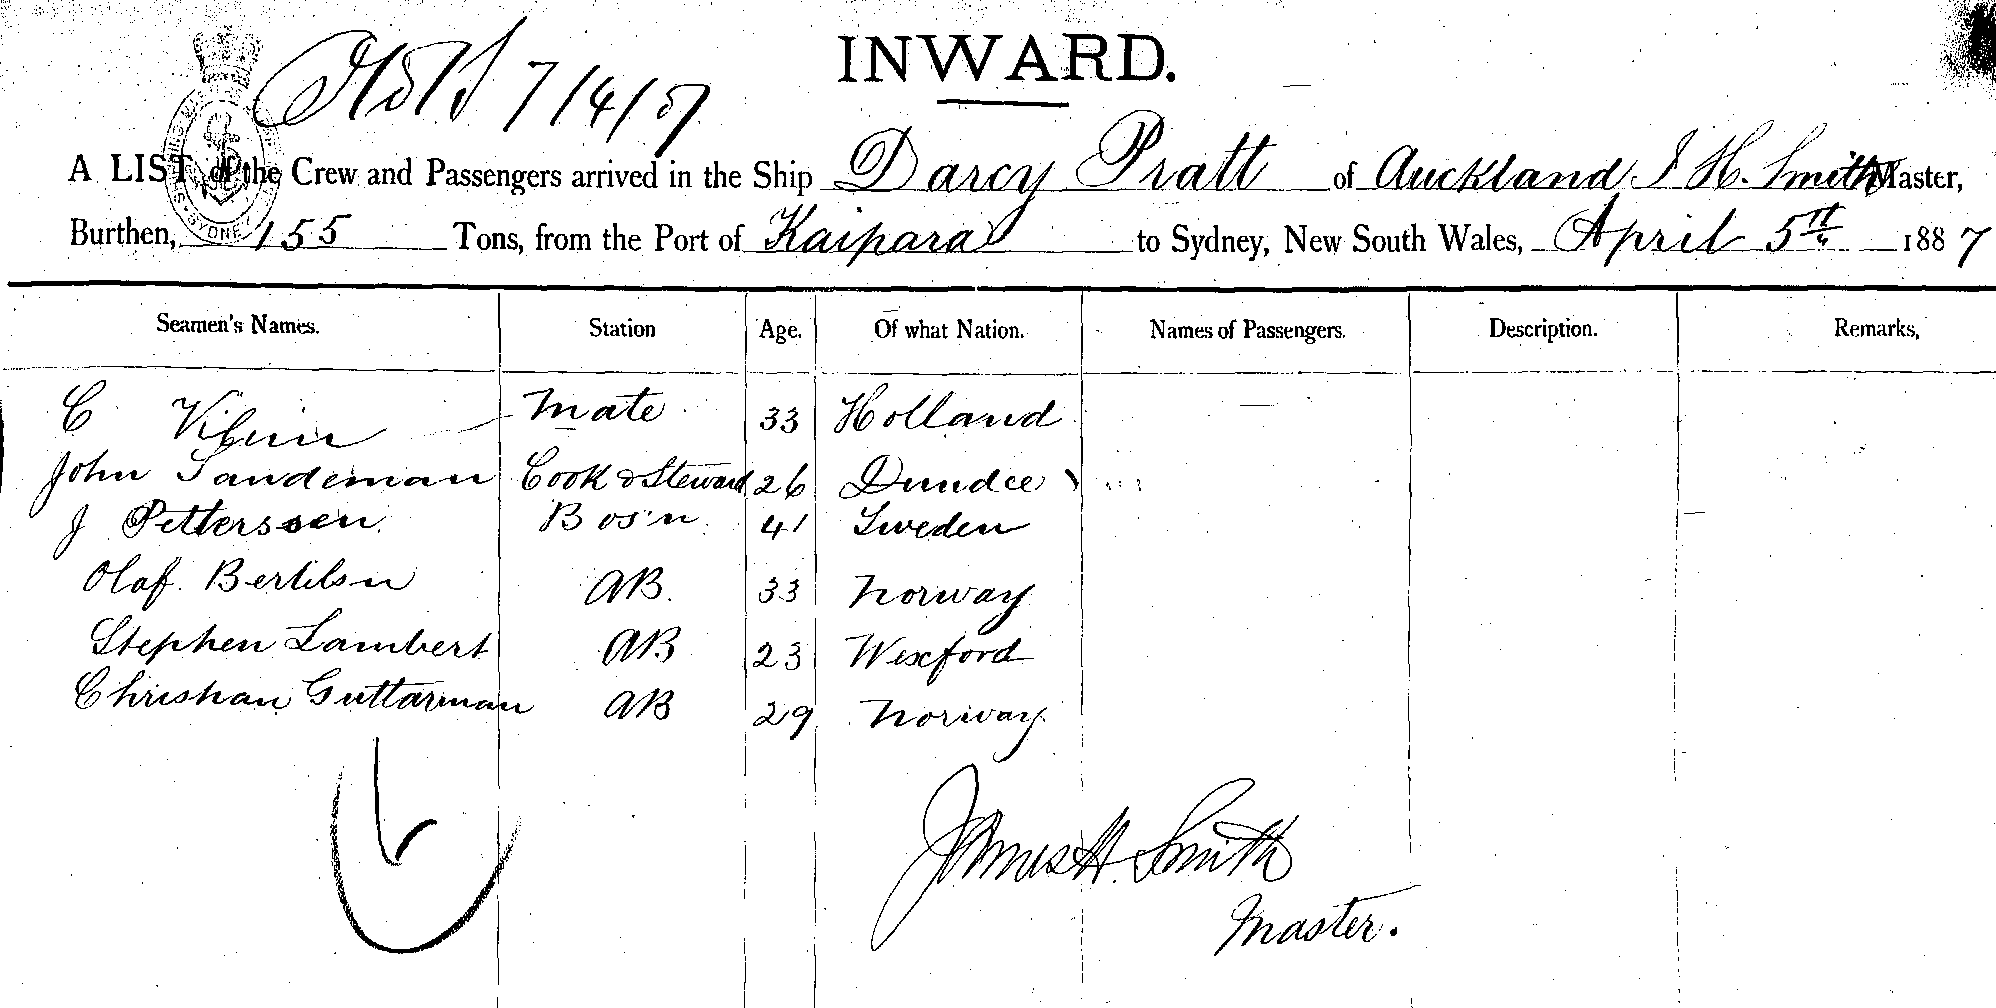 INWARD.
7/4/87
A LIST of the Crew and Passengers arrived in the Ship Darcy Pratt of Auckland J H. Smith Master,
Burthen, 155 Tons, from the Port of Kaipara to Sydney, New South Wales, April 5th 1887
Seamen's Names. Station Age. Of what Nation. Names of Passengers. Description. Remarks,
C Mate 33 Holland
John Sandeman Cook & Steward 26 Dundee
J Petterssen Bos'n 41 Sweden
Olaf Bertilsn AB. 33 Norway
Stephen Lambert AB 23 Wexford
Christian Guttarman AB 29 Norway
James H. Smith
Master.